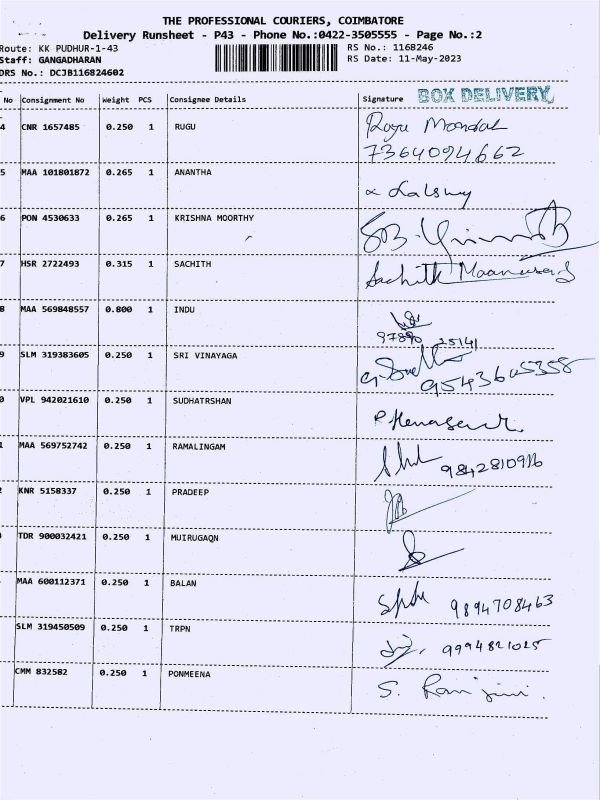 THE PROFESSIONAL COURIERS, COIMBATORE
Delivery Runsheet - P43 - Phone No.:0422-3505555 - Page No.:2
Route: KK PUDHUR-1-43 RS No.: 1168246
Staff: GANGADHARAN RS Date: 11-May-2023
DRS No.: DCJB116824602
No Consignment No Weight PCS Consignee Details Signature BOX DELIVERY
4 CNR 1657485 0.250 1 RUGU
7364094662
5 MAA 101801872 0.265 1 ANANTHA
6 PON 4530633 0.265 1 KRISHNA MOORTHY
7 HSR 2722493 0.315 1 SACHITH Sachith
8 MAA 569848557 0.800 1 INDU
97890 25141
9 SLM 319383605 0.250 1 SRI VINAYAGA
0 VPL 942021610 0.250 1 SUDHATRSHAN
1 MAA 569752742 0.250 1 RAMALINGAM
2 KNR 5158337 0.250 1 PRADEEP
TDR 900032421 0.250 1 MUIRUGAQN
MAA 600112371 0.250 1 BALAN 9894708463
SLM 319450509 0.250 1 TRPN 9994821025
CMM 832582 0.250 1 PONMEENA S.